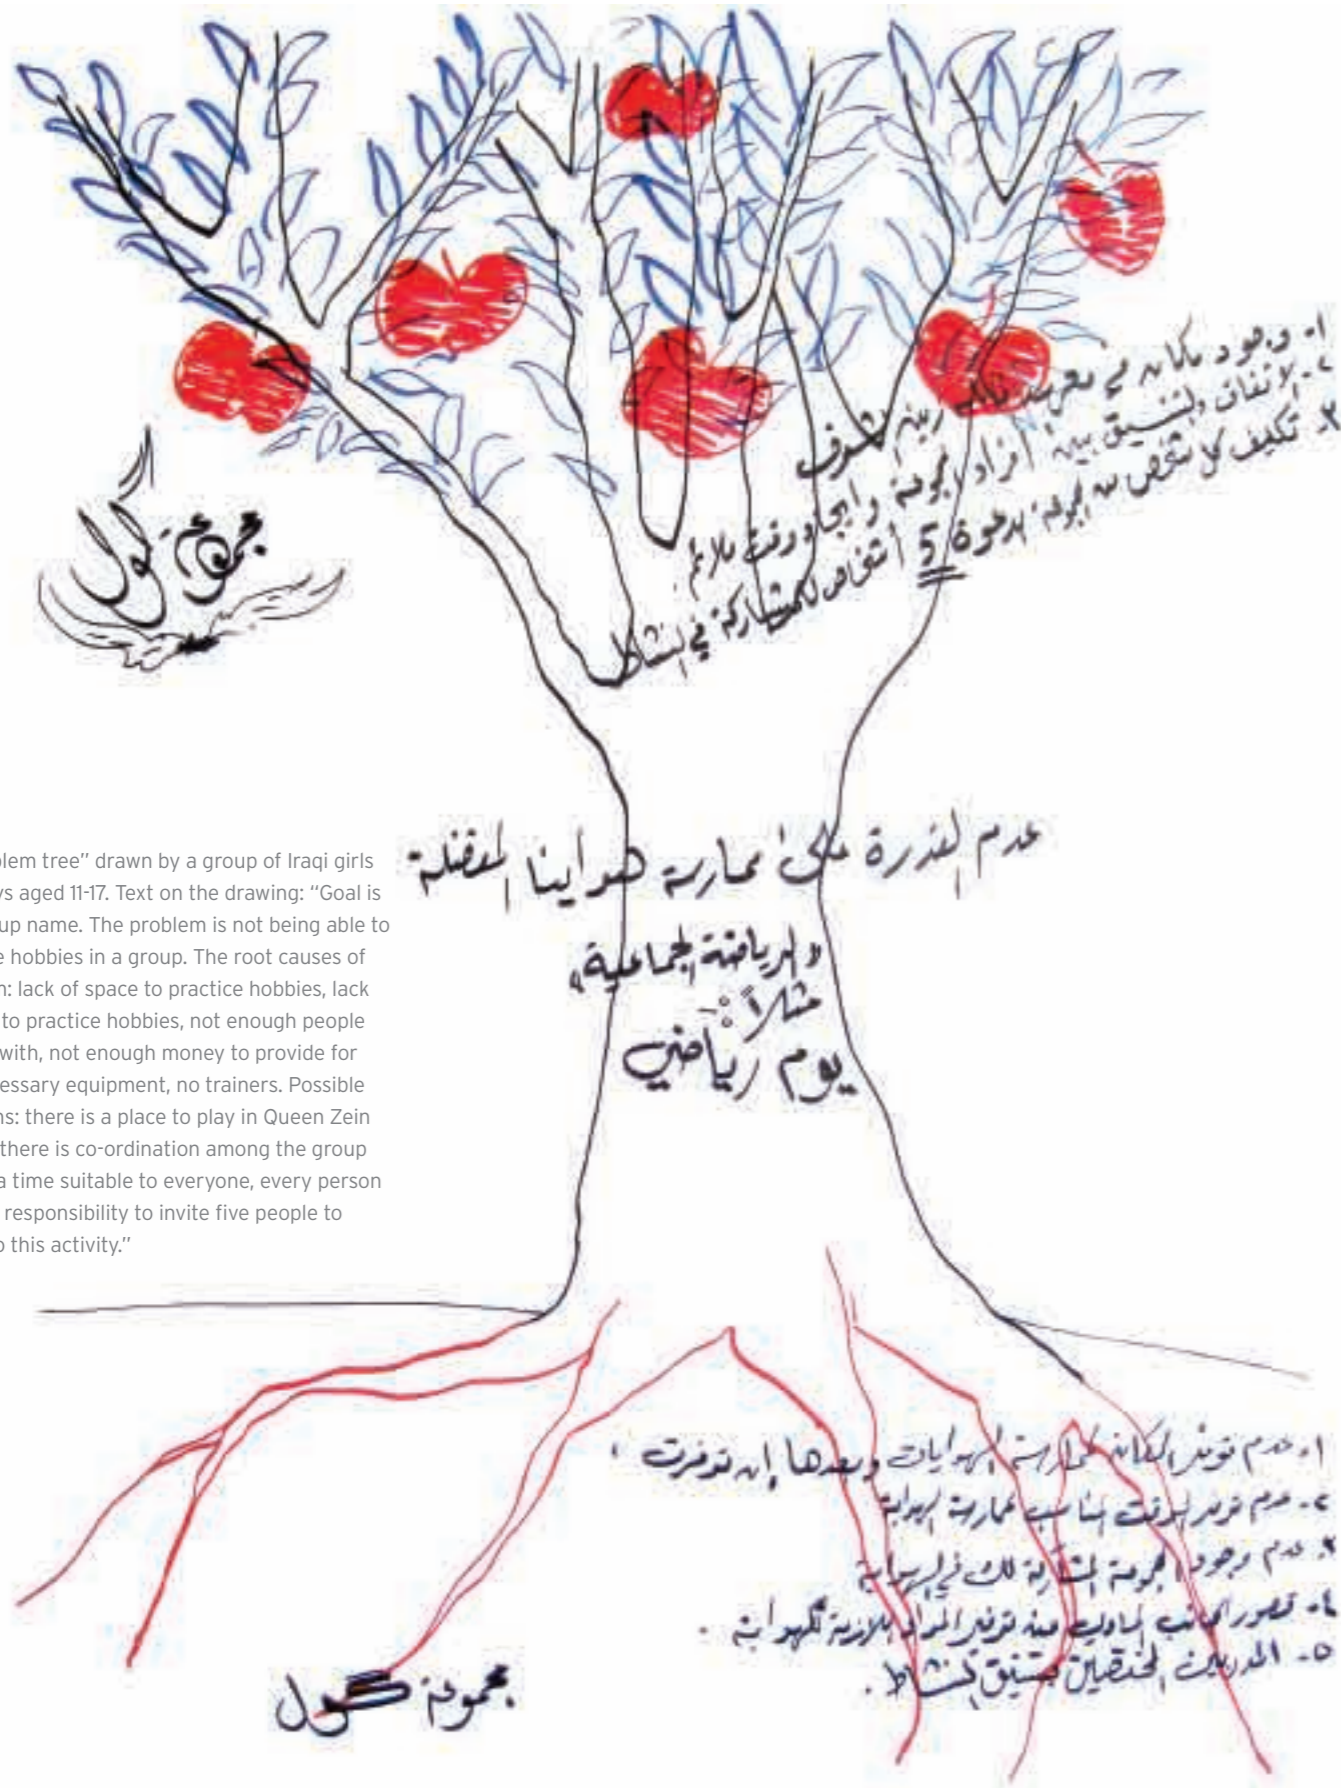 ١- وجود مكان في معهد الملكة زين الشرف
٢- الاتفاق والتنسيق بين أفراد المجموعة وإيجاد وقت ملائم.
٣- تكليف كل شخص من المجموعة بدعوة 5 أشخاص للمشاركة في النشاط
مجموعة گول
عدم القدرة على ممارسة هواياتنا المفضلة
"الرياضة الجماعية"
مثلاً:
يوم رياضي
lem tree” drawn by a group of Iraqi girls
ys aged 11-17. Text on the drawing: “Goal is
up name. The problem is not being able to
e hobbies in a group. The root causes of
n: lack of space to practice hobbies, lack
to practice hobbies, not enough people
with, not enough money to provide for
essary equipment, no trainers. Possible
ns: there is a place to play in Queen Zein
there is co-ordination among the group
a time suitable to everyone, every person
responsibility to invite five people to
o this activity.”
١- عدم توفر المكان لممارسة الهوايات وبعدها إن توفرت
٢- عدم توفر الوقت المناسب لممارسة الهواية
٣- عدم وجود المجموعة المشاركة لك في الهواية
٤- قصور الجانب المادي عند توفير المواد اللازمة للهواية.
٥- المدربين المختصين النشاط.
مجموعة گول